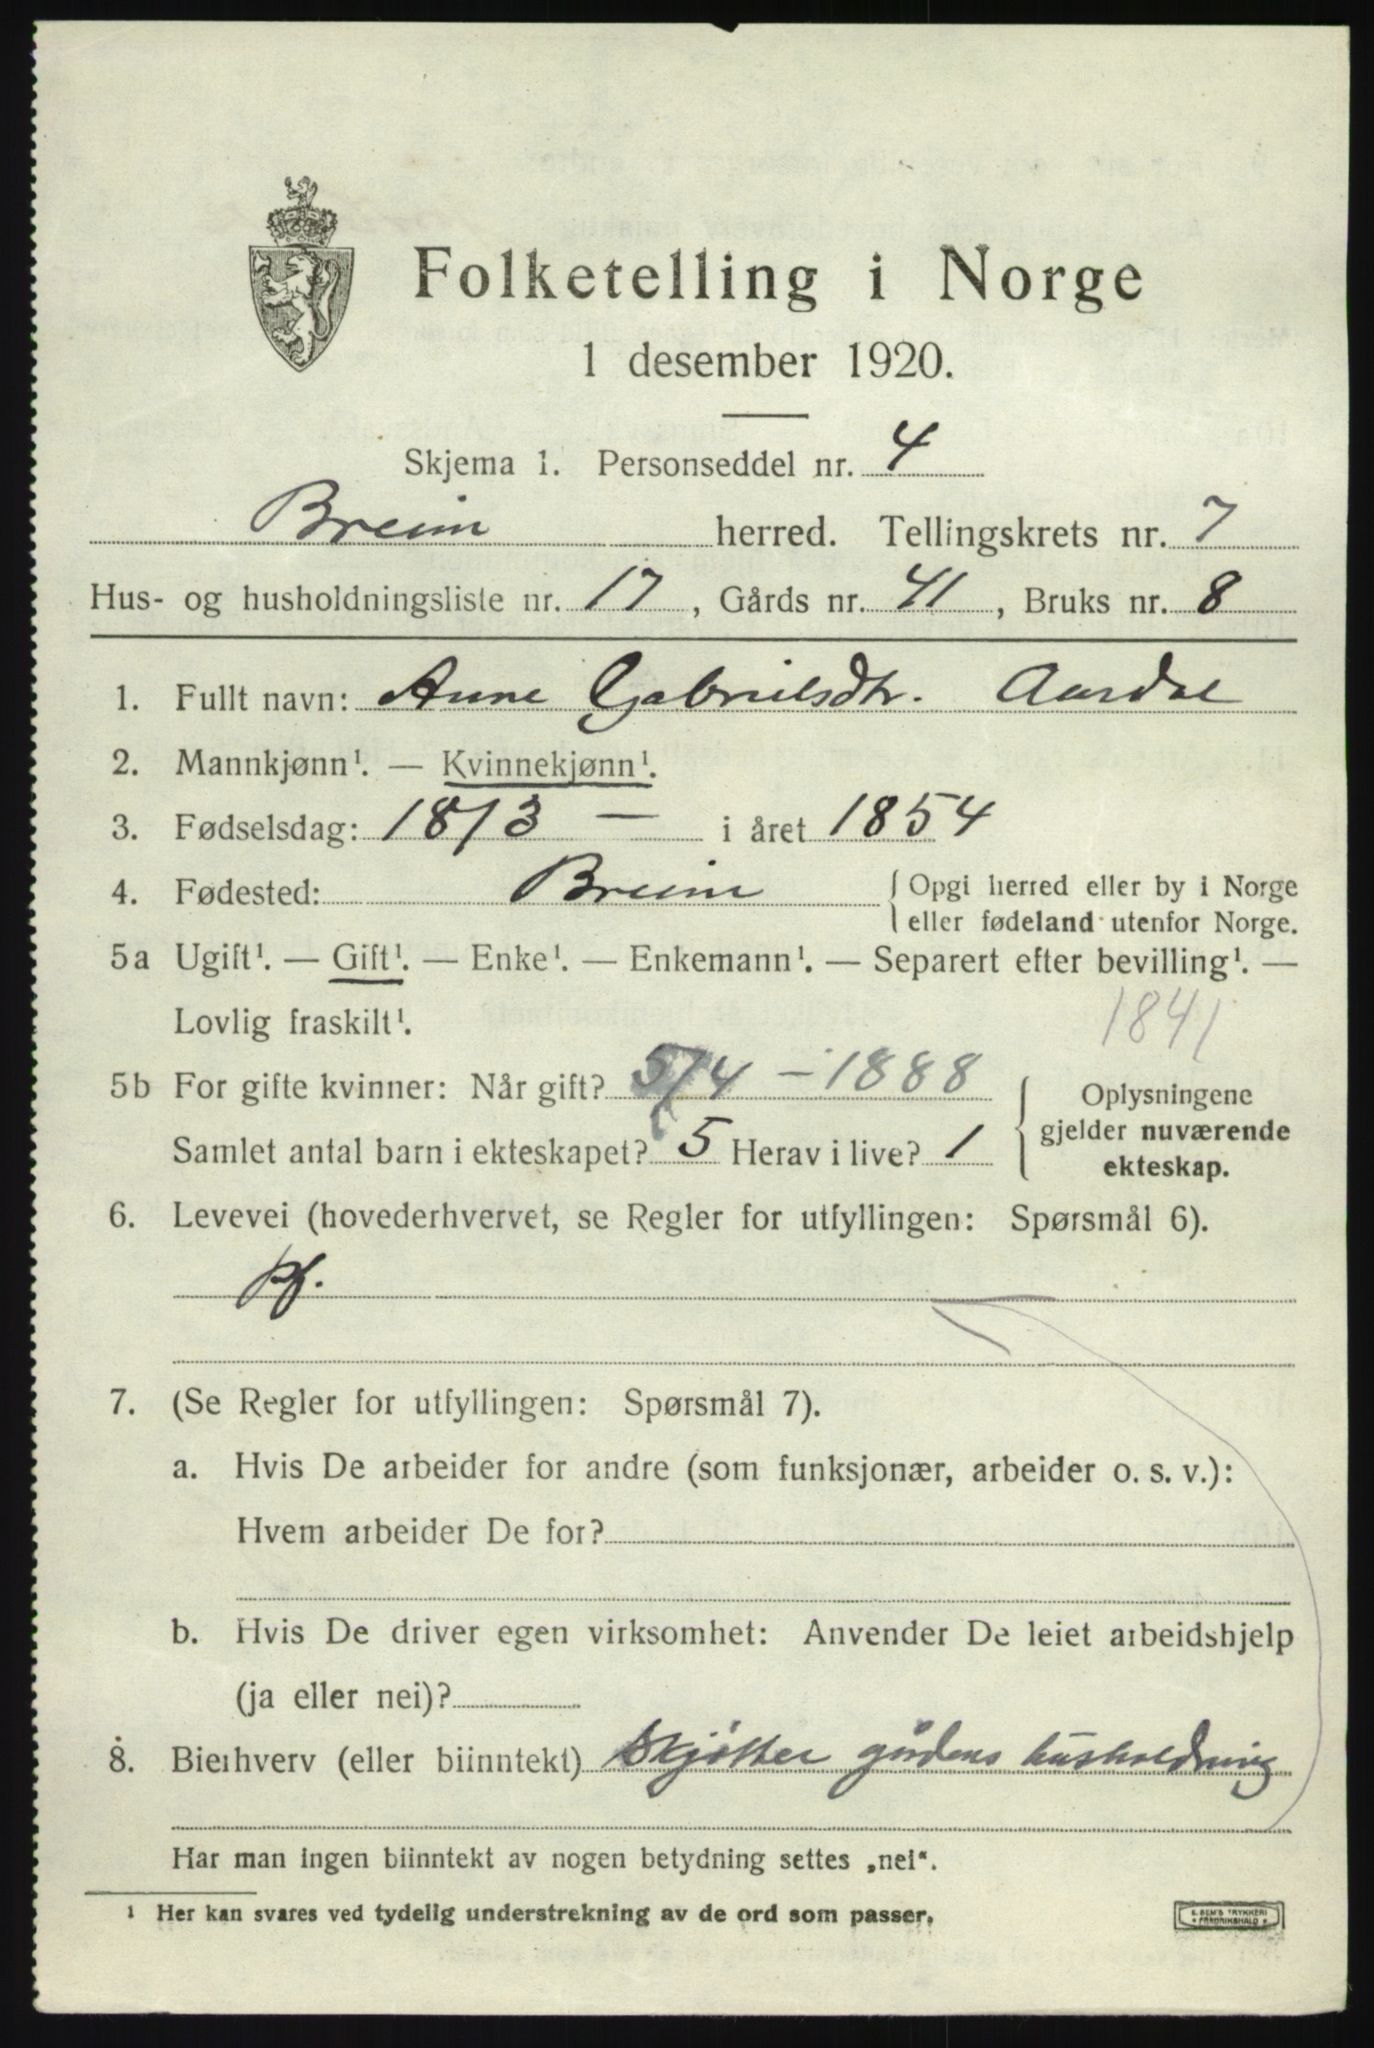 Folketelling i Norge
1 desember 1920.
Skjema 1. Personseddel nr. 4
Breim herred. Tellingskrets nr. 7
Hus- og husholdningsliste nr. 17, Gårds nr. 41, Bruks nr. 8
1. Fullt navn: Anne Gabrielsdtr. Aardal
2. Mannkjønn¹. — Kvinnekjønn¹.
3. Fødselsdag: 18/3 — i året 1854
4. Fødested: Breim { Opgi herred eller by i Norge
eller fødeland utenfor Norge.
5a Ugift¹. — Gift¹. — Enke¹. — Enkemann¹. — Separert efter bevilling¹. —
Lovlig fraskilt¹.
1841
5b For gifte kvinner: Når gift? 5/4 — 1888
Samlet antal barn i ekteskapet? 5 Herav i live? 1
{ Oplysningene
gjelder nuværende
ekteskap.
6. Levevei (hovederhvervet, se Regler for utfyllingen: Spørsmål 6).
pf.
7. (Se Regler for utfyllingen: Spørsmål 7).
a. Hvis De arbeider for andre (som funksjonær, arbeider o. s. v.):
Hvem arbeider De for?
b. Hvis De driver egen virksomhet: Anvender De leiet arbeidshjelp
(ja eller nei)?
8. Bierhverv (eller biinntekt) Skjøtter gårdens husholdning
Har man ingen biinntekt av nogen betydning settes „nei“.
¹ Her kan svares ved tydelig understrekning av de ord som passer.
E. SEM'S TRYKKERI
FREDRIKSHALD